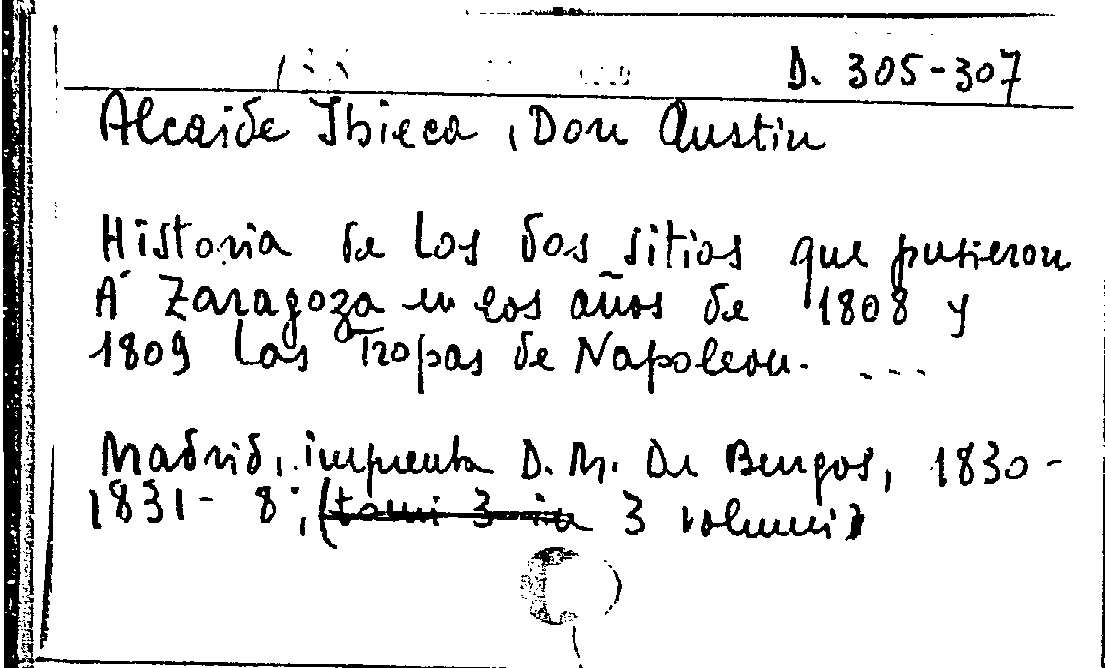 D. 305-307
Alcaide Ibieca, Don Austin
Historia de los dos sitios que pusieron
A Zaragoza en los años de 1808 y
1809 Las Tropas de Napoleon. ...
Madrid, imprenta D. M. De Burgos, 1830-
1831- 8°; (tomi 3 in 3 volumi)